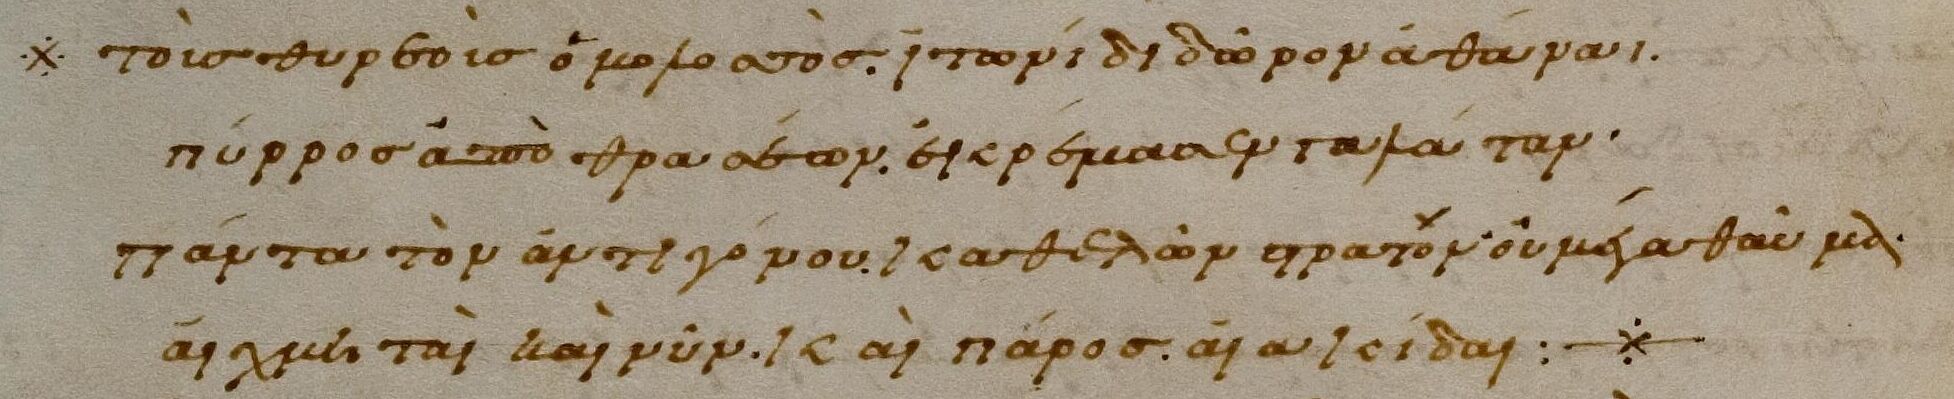 ※ τοὺς θυρεοὺς ὁ μολοσσὸς. ἰτωνίδι δῶρον ἀθάναι.
πύρρος ἀπὸ θρασέων. ἐκρέμασεν γαλάταν.
πάντα τὸν ἀντιγόνου. καθελὼν στρατὸν οὐ μέγα θαῦμα.
αἰχμηταὶ καὶ νῦν. καὶ πάρος. αἰακίδαι : ※